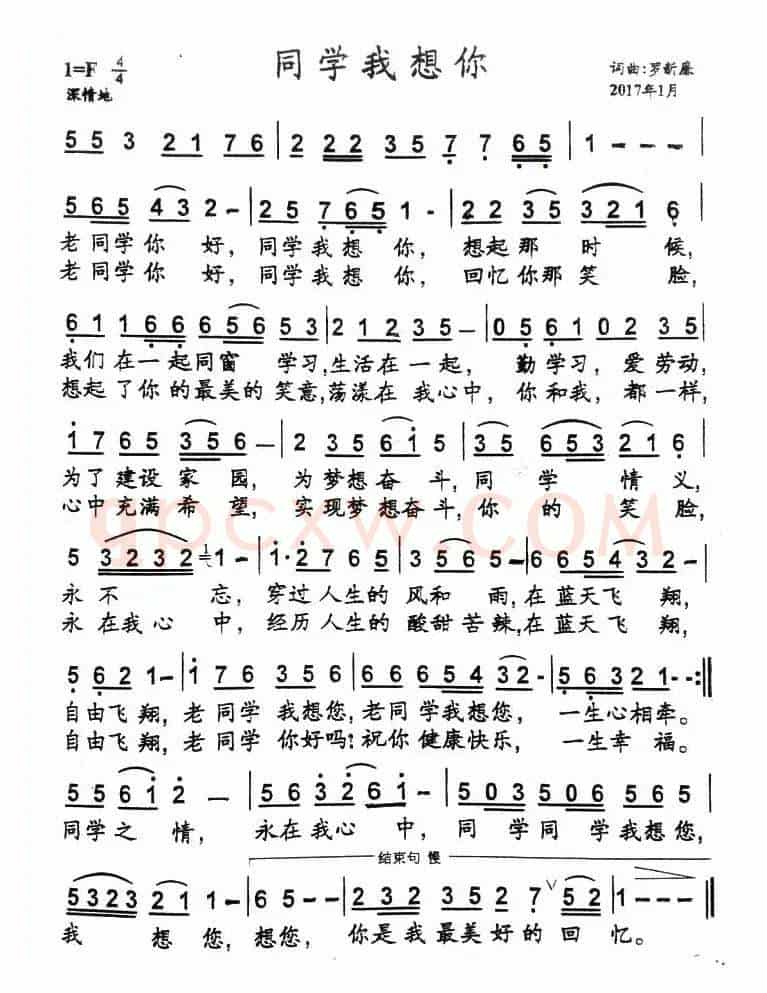 同学我想你
1=F 4/4
深情地
词曲:罗新藤
2017年1月
5 5 3 2 1 7 6 | 2 2 2 3 5 7 7 6 5 | 1 - - - |
5 6 5 4 3 2 - | 2 5 7 6 5 1 - | 2 2 3 5 3 2 1 6 |
老同学你 好，同学我想 你， 想起那 时 候，
老同学你 好，同学我想 你， 回忆你那笑 脸，
6 1 1 6 6 6 5 6 5 3 | 2 1 2 3 5 - | 0 5 6 1 0 0 2 3 5 |
我们在一起同窗 学习,生活在一起， 勤学习，爱劳动，
想起了你的最美的笑意,荡漾在我心中，你和我，都一样，
1 7 6 5 3 5 6 - | 2 3 5 6 1 5 | 3 5 6 5 3 2 1 6 |
为了建设家园，为梦想奋斗，同 学 情义，
心中充满希望，实现梦想奋斗，你 的 笑脸，
5 3 2 3 2 1 - | 1 · 2 7 6 5 | 3 5 6 5 - | 6 6 5 4 3 2 - |
永不 忘，穿过人生的 风和 雨,在蓝天飞 翔，
永在我心 中，经历人生的 酸甜苦辣,在蓝天飞 翔，
5 6 2 1 - | 1 7 6 3 5 6 | 6 6 6 5 4 3 2 - | 5 6 3 2 1 - - :‖
自由飞翔，老同学 我想您,老同学我想您， 一生心相牵。
自由飞翔，老同学 你好吗?祝你健康快乐， 一生幸福。
5 5 6 1 2 - | 5 6 3 2 6 1 - | 5 0 3 5 0 6 5 6 5 |
同学之 情， 永在我心 中，同 学同 学我想您，
结束句 慢
5 3 2 3 5 2 1 - | 6 5 - - | 2 3 2 3 5 2 7 ∨ 5 2 | 1 - - - ‖
我 想您，想您， 你是我最美好的 回 忆。
gpcxw.COM